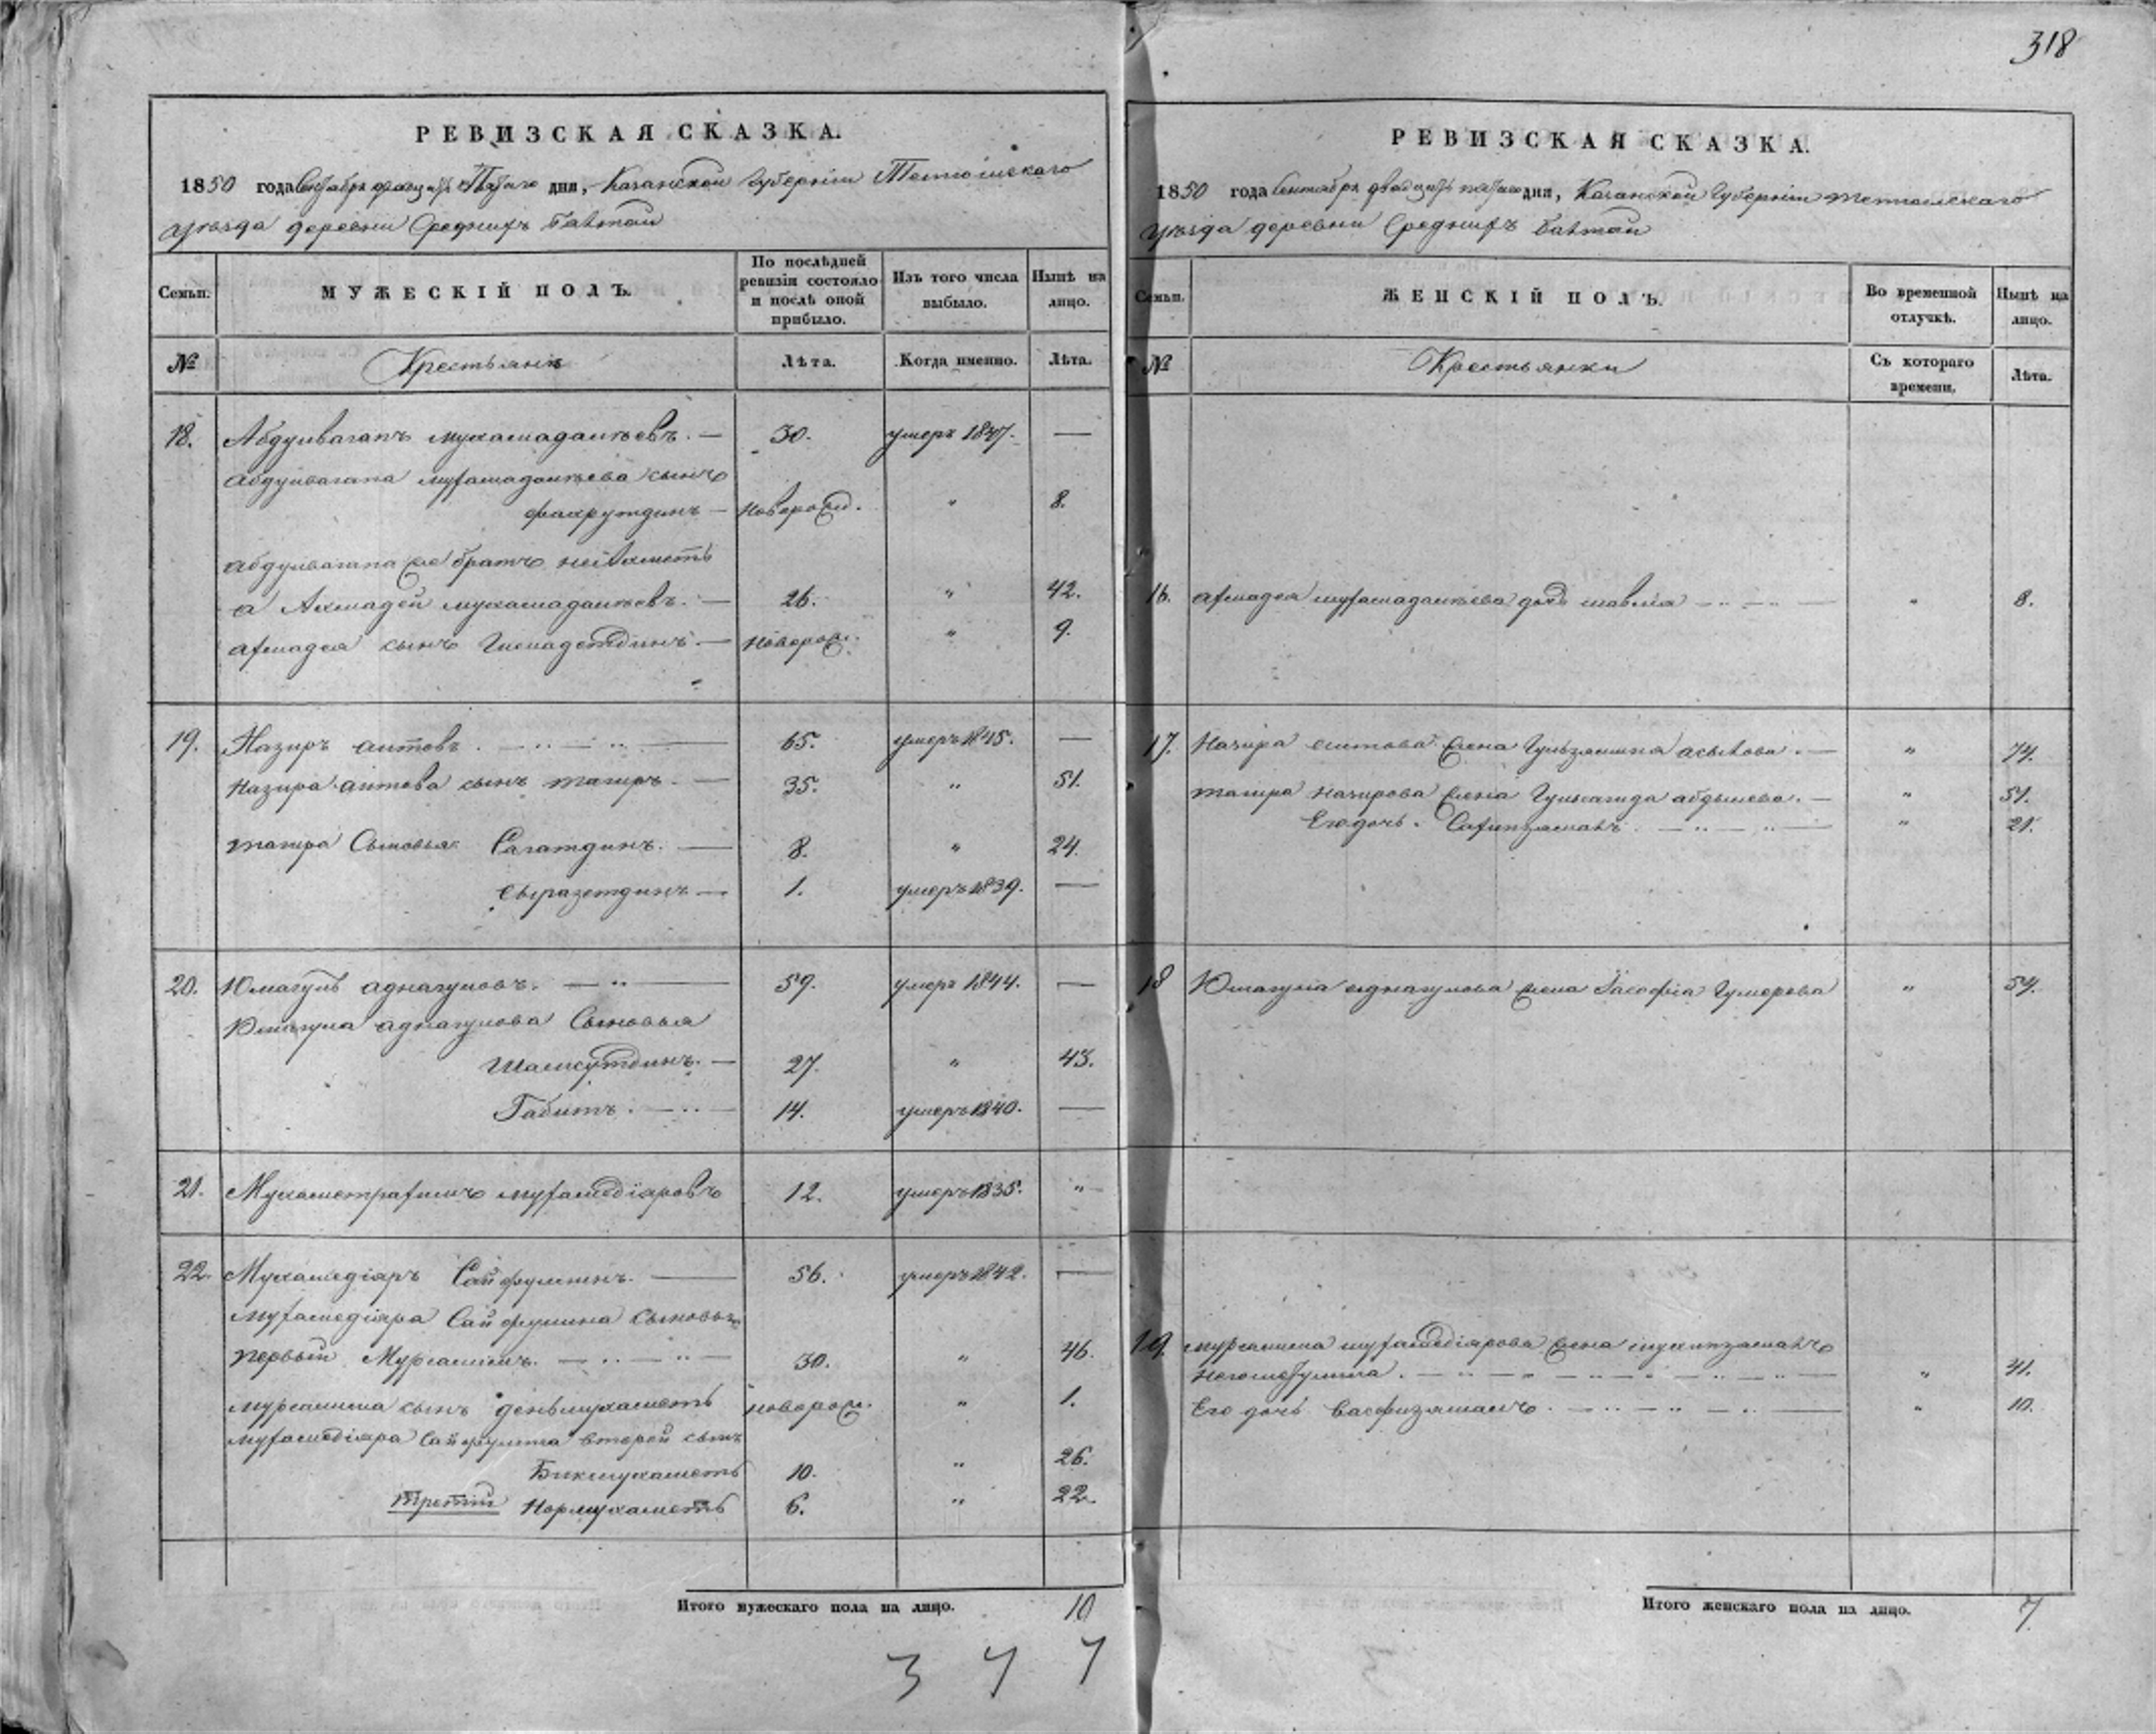 318
РЕВИЗСКАЯ СКАЗКА.
1850 года Сентября двадцать Пятаго дня, Казанской Губерніи Тетюшскаго
уѣзда деревни Среднихъ Балтай
Семьи. МУЖЕСКІЙ ПОЛЪ. По послѣдней ревизіи состояло и послѣ оной прибыло. Изъ того числа выбыло. Нынѣ на лицо.
№ Крестьяне Лѣта. Когда именно. Лѣта.
18. Абдулвагапъ мухамадамѣевъ. — 30. умеръ 1847. —
Абдулвагапа мухамадамѣева сынъ
фахрутдинъ — новорожд. " 8.
Абдулвагапа же братъ
Ахмадей мухамадамѣевъ. — 26. " 42.
ахмадея сынъ — новорож. " 9.
19. Назиръ аитовъ. — 65. умеръ 1845. —
Назира аитова сынъ тагиръ. — 35. " 51.
тагира Сыновья Сагатдинъ. — 8. " 24.
Сыразетдинъ — 1. умеръ 1839. —
20. Юмагулъ аднагуловъ. — " — 59. умеръ 1844. —
Юмагула аднагулова Сыновья
Шамсутдинъ. — 27. " 43.
Габитъ. — 14. умеръ 1840. —
21. Мухаметрахимъ мухамедіяровъ 12. умеръ 1835. "
22. Мухамедіяръ Сайфулинъ. — 56. умеръ 1842. —
мухамедіяра Сайфулина Сыновья
первый Мурсалимъ. — 30. " 46.
мурсалима сынъ деньмухаметъ новорож. " 1.
мухамедіяра Сайфулина второй сынъ
Бикмухаметъ 10. " 26.
третій Нормухаметъ 6. " 22.
Итого мужескаго пола на лицо. 10
3 4 7
РЕВИЗСКАЯ СКАЗКА.
1850 года Сентября двадцать пятаго дня, Казанской Губерніи тетюшскаго
уѣзда деревни Среднихъ Балтай
Семьи. ЖЕНСКІЙ ПОЛЪ. Во временной отлучкѣ. Нынѣ на лицо.
№ Крестьянки Съ котораго времени. Лѣта.
16. ахмадея мухамадамѣева дочь — " 8.
17. Назира аитова жена асылова. — " 74.
тагира назирова жена абдышева. — " 51.
Его дочь. — " 21.
18 Юмагула аднагулова жена Гумерова " 59.
19. мурсалима мухамедіярова жена
— " 41.
Его дочь — " 10.
Итого женскаго пола на лицо. 7